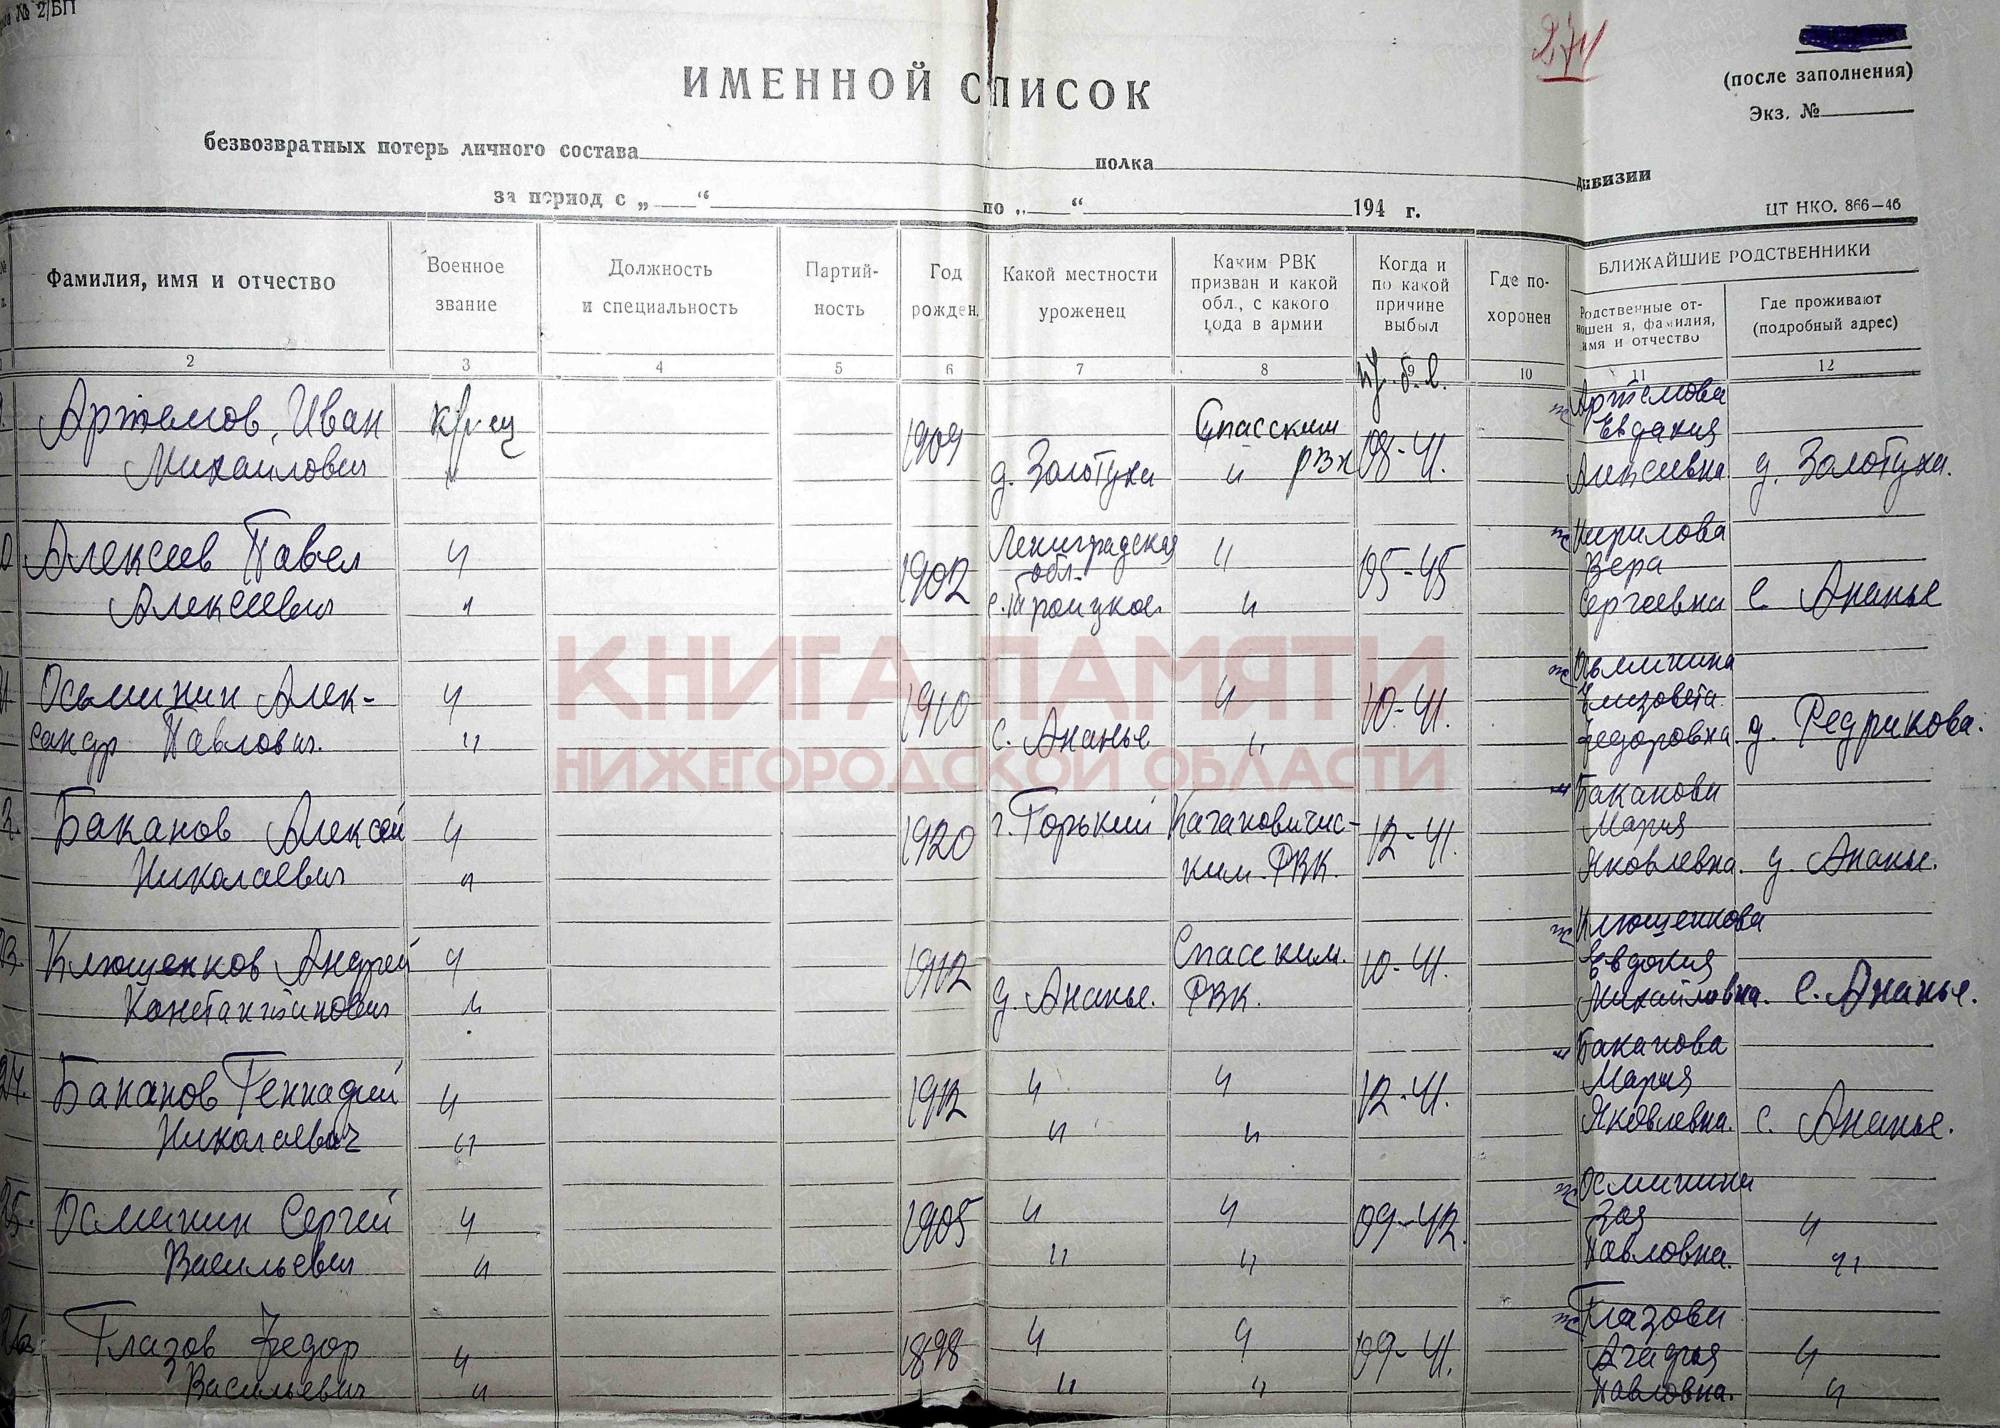 № 2/БП
271
(после заполнения)
Экз. №
ИМЕННОЙ СПИСОК
безвозвратных потерь личного состава полка дивизии
за период с „ “ по „ “ 194 г.
ЦТ НКО. 866—46
Фамилия, имя и отчество
Военное звание
Должность и специальность
Партий-ность
Год рожден.
Какой местности уроженец
Каким РВК призван и какой обл., с какого года в армии
Когда и по какой причине выбыл
Где по-хоронен
БЛИЖАЙШИЕ РОДСТВЕННИКИ
Родственные от-ношен я, фамилия, имя и отчество
Где проживают (подробный адрес)
2 3 4 5 6 7 8 9 10 11 12
Артемов, Иван
Михайлович
1909
д. Золотуха
Спасским
РВК
08-41.
Артемова
Евдокия
Алексеевна
д. Золотуха.
Алексеев Павел
Алексеевич
1902
Ленинградская
обл.
с. Троицкое
05-45
Кирилова
Вера
Сергеевна
с Ананье
Осьминин Алек-
сандр Павлович.
1910
с. Ананье
10-41.
Осьминина
Елизовета
Федоровна
д. Редрикова.
Баканов Алексей
Николаевич
1920
г. Горький
Кагановичис-
ким РВК.
12-41.
Баканова
Мария
Яковлевна.
д. Ананье.
23.
Клющенков Андрей
Константинович
1912
д. Ананье.
Спасским.
РВК.
10-41.
Клющенкова
Евдокия
Михайловна.
с. Ананье.
24.
Баканов Геннадий
Николаевич
1912
12-41.
Баканова
Мария
Яковлевна.
с. Ананье.
25.
Осминин Сергей
Васильевич
1905
09-42.
Осминина
Зоя
Павловна.
26.
Глазов Федор
Васильевич
1898
09-41.
Глазова
Павловна.
КНИГА ПАМЯТИ
НИЖЕГОРОДСКОЙ ОБЛАСТИ